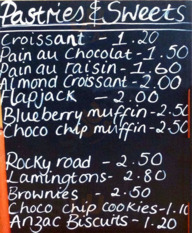 Pastries & Sweets
Croissant - 1.20
Pain au Chocolat - 1.50
Pain au raisin - 1.60
Almond Croissant - 2.00
Flapjack - 2.00
Blueberry muffin - 2.50
Choco chip muffin - 2.50
Rocky road - 2.50
Lamingtons - 2.80
Brownies - 2.50
Choco chip cookies - 1.10
Anzac Biscuits - 1.20